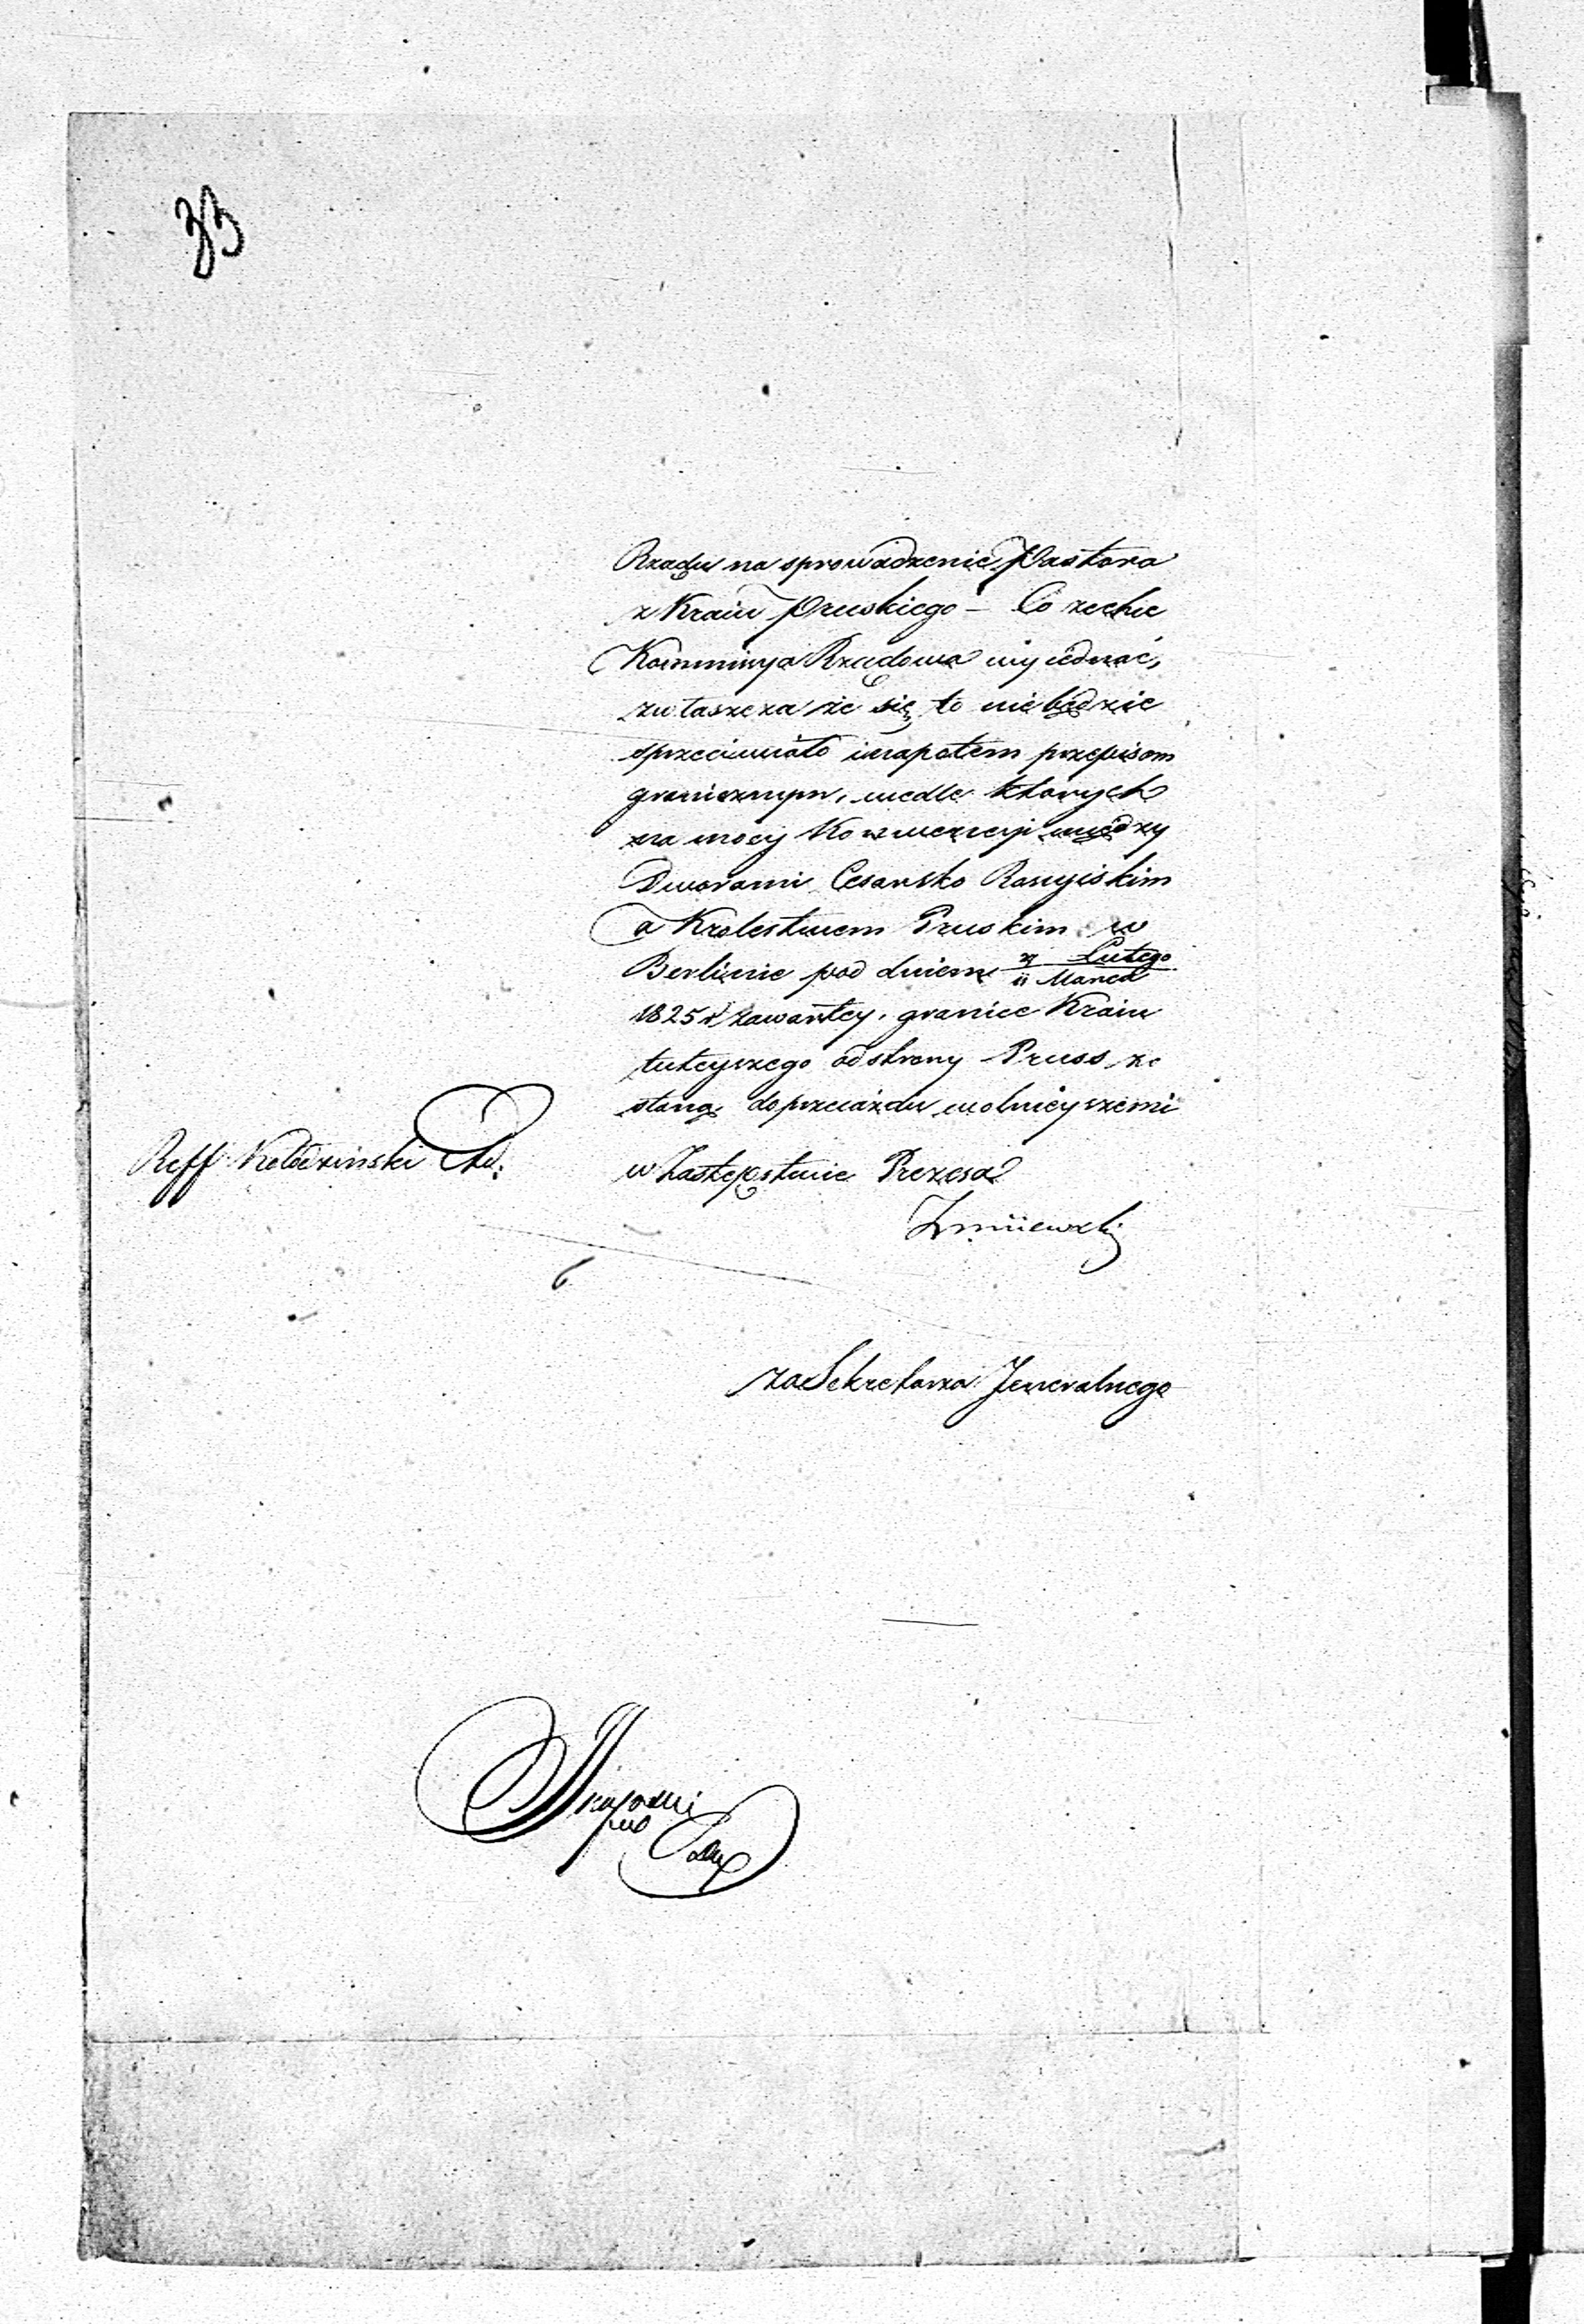 33
Rządu na sprowadzenie Pastora
z Kraiu Pruskiego – Co zechce
Kommissya Rządowa wyiednać,
zwłaszcza że się to nie będzie
sprzeciwiało zapotem przepisom
granicznym, wedle których
na mocy Konwencyi między
Dworami Cesarsko Rossyiskim
a Krolestwem Pruskim w
Berlinie pod dniem 27 Lutego / 11 Marca
1825 r zawartey, granice Kraiu
tuteyszego od strony Pruss zo
staną do przeiazdu wolnieyszemi
Reff Kołodzinski
w Zastępstwie Prezesa
Zmiiewski
za Sekretarza Jeneralnego